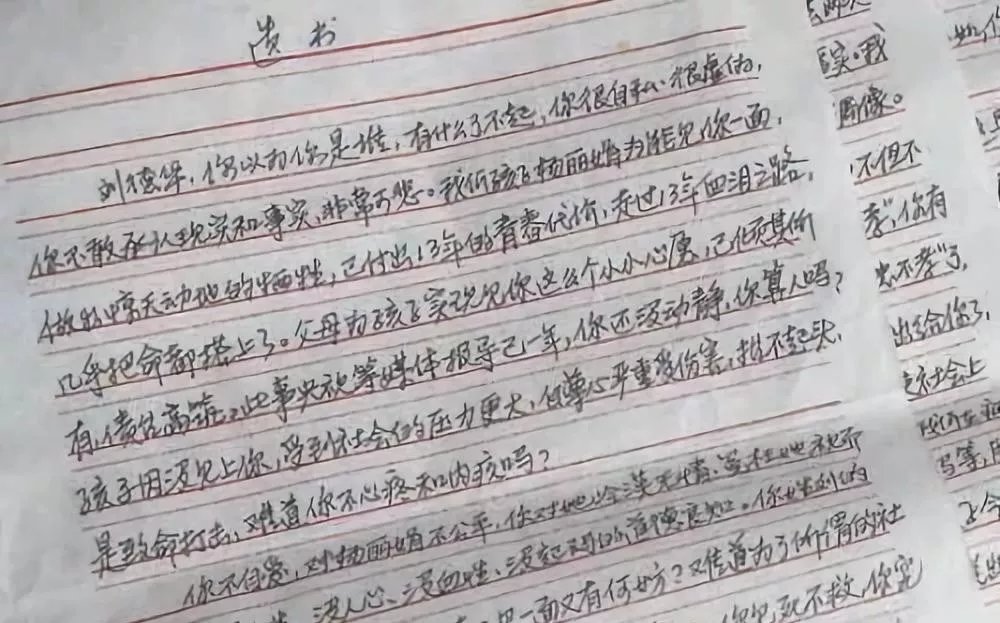 遗书
刘德华,你以为你是谁,有什么了不起,你很自私、很虚伪,
你不敢承认现实和事实,非常可悲。我们孩子杨丽娟为能见你一面,
做出惊天动地的牺牲,已付出13年的青春代价,走过13年血泪之路,
几乎把命都搭上了。父母为孩子实现见你这么个小小心愿,已倾其所
有,债台高筑。此事央视等媒体报导已一年,你还没动静,你算人吗?
孩子因没见上你,受到社会的压力更大,自尊心严重受伤害,抬不起头,
是致命打击,难道你不心疼和内疚吗?
你不自爱,对杨丽娟不公平,你对她冷漠无情
没人心、没血性、没起码的道德良知。你
见一面又有何妨?难道为了所谓的社
死不救,你
实。我
偶像。
,不但不
孝",你有
出不孝了,
出给你了,
社会上